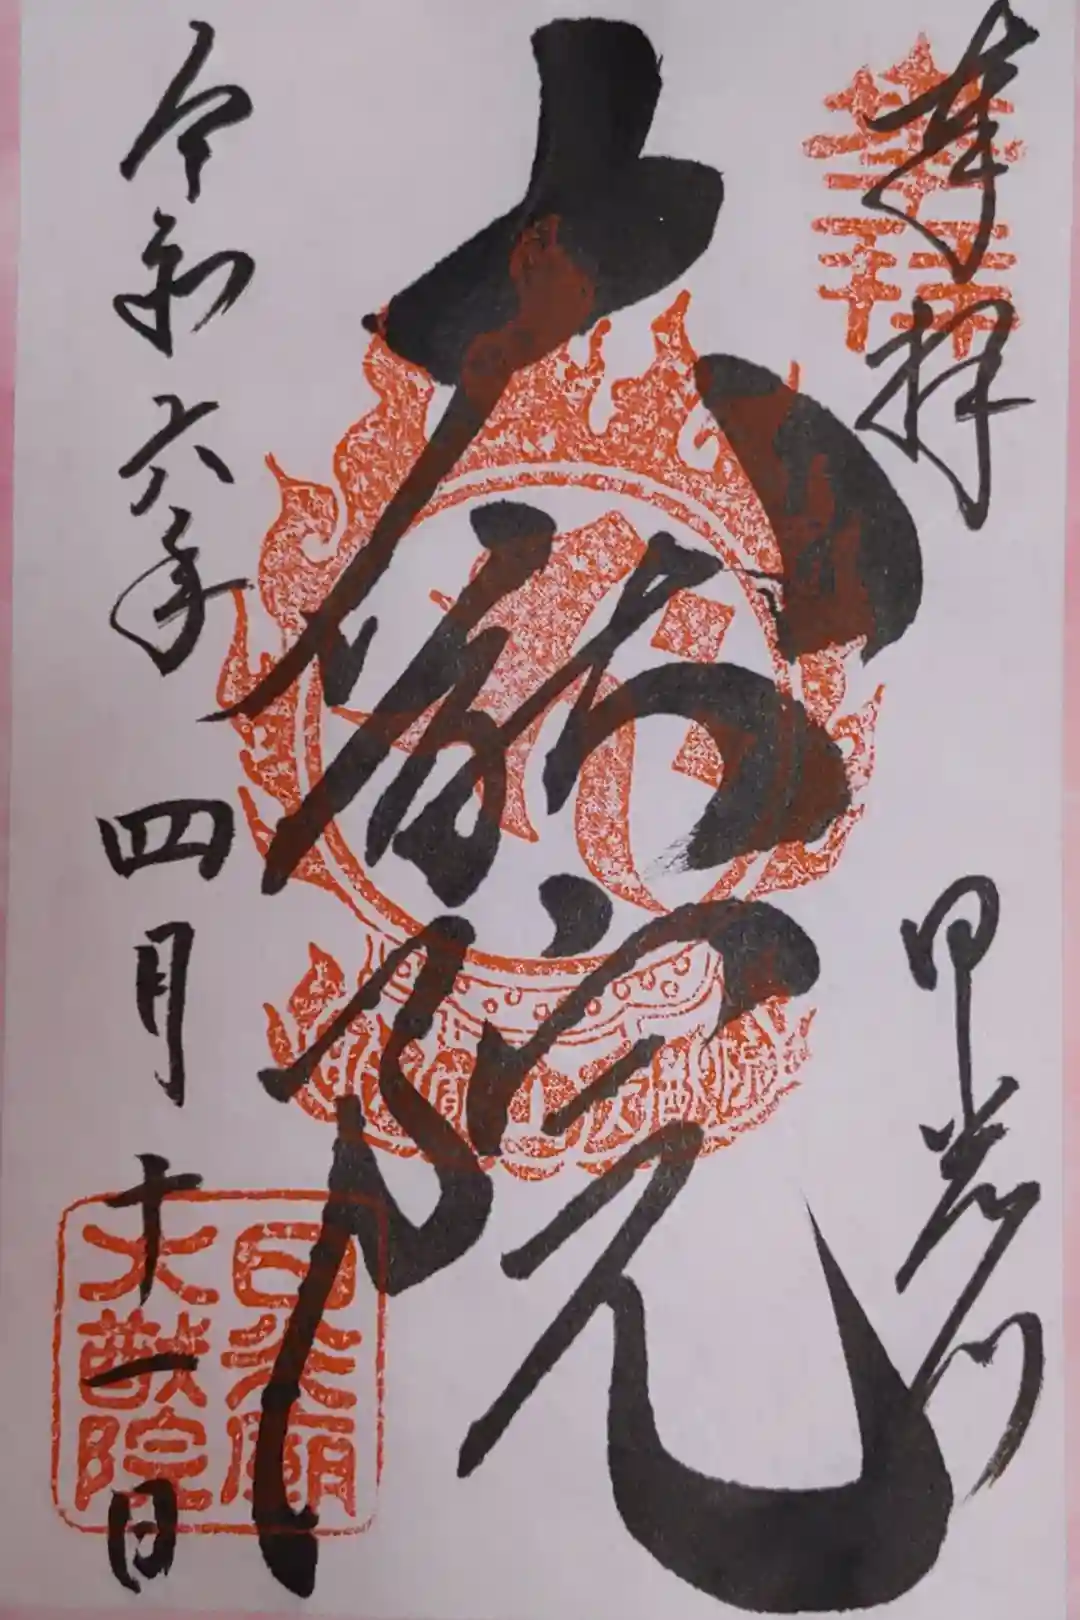 奉拝
日光山
大猷院
令和六年四月十一日
日光廟
大猷院